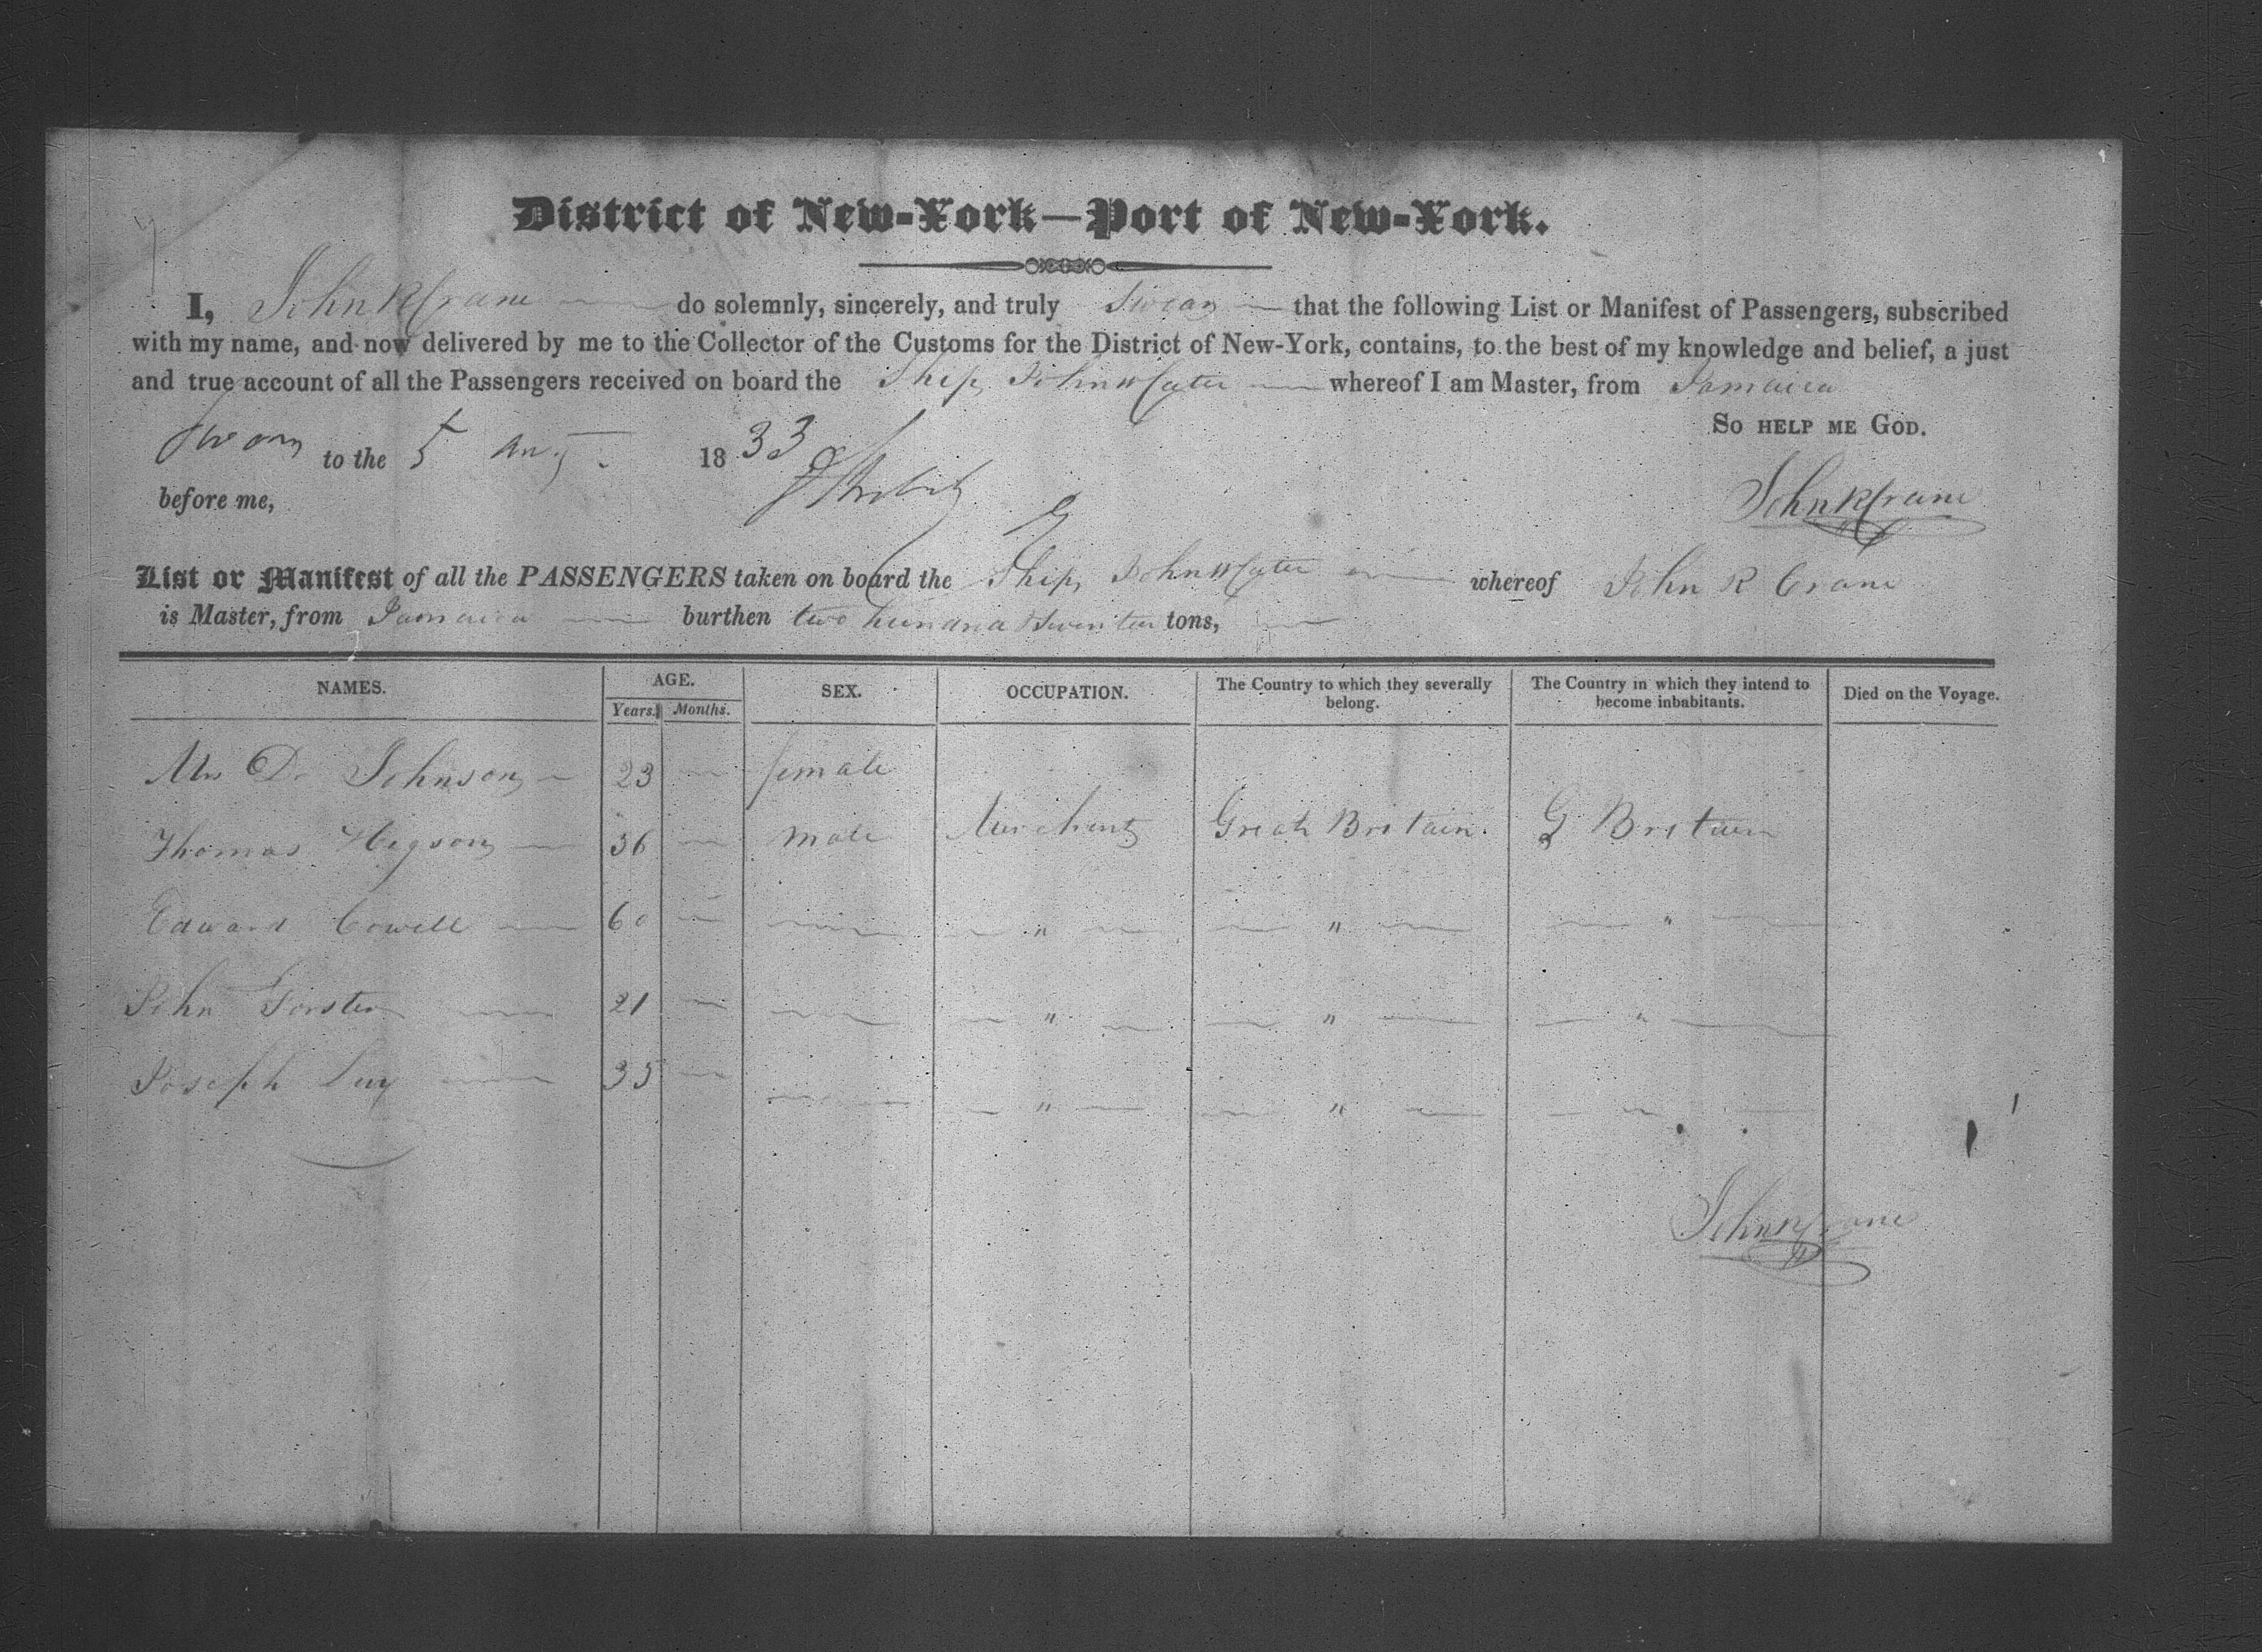 District of New-York—Port of New-York.
I, John R Crane do solemnly, sincerely, and truly Swear that the following List or Manifest of Passengers, subscribed
with my name, and now delivered by me to the Collector of the Customs for the District of New-York, contains, to the best of my knowledge and belief, a just
and true account of all the Passengers received on board the Ship John W Cater whereof I am Master, from Jamaica
So help me God.
Sworn to the 5 Aug 1833
before me,
John R Crane
List or Manifest of all the PASSENGERS taken on board the Ship John W Cater whereof John R Crane
is Master, from Jamaica burthen two hundred tons,
NAMES. AGE. Years. Months. SEX. OCCUPATION. The Country to which they severally belong. The Country in which they intend to become inhabitants. Died on the Voyage.
Mrs D. Johnson 23 female
Thomas Higson 36 male Merchant Great Britain. G Britain
Edward Cowell 60 " " "
John Forster 21 " " "
Joseph 35 " "
John R Crane